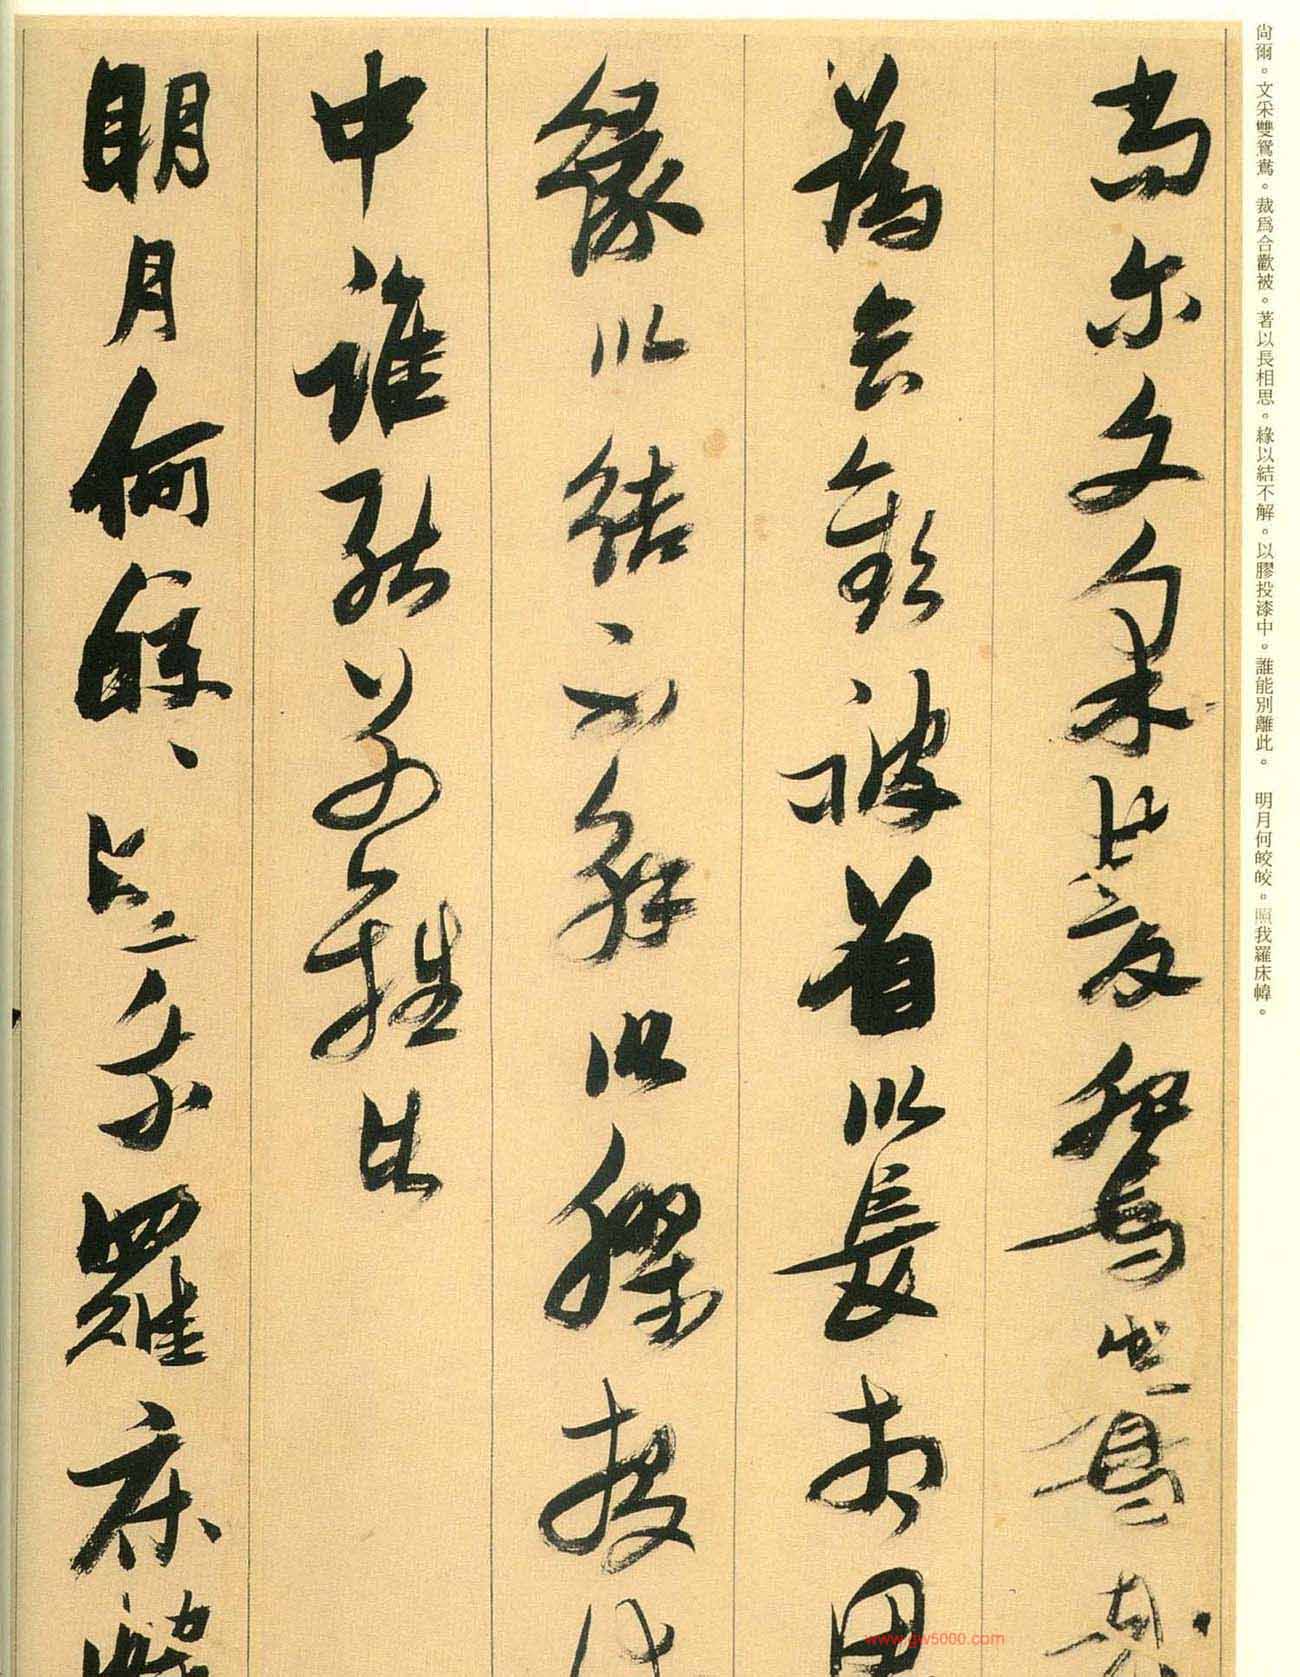 尙爾。文采雙鴛鴦。裁爲合歡被。著以長相思。緣以結不解。以膠投漆中。誰能別離此。　明月何皎皎。照我羅床幃。
尚尔文采雙鴛鴦裁
為合歡被著以長相思
緣以結不解以膠投漆
中誰能別離此
明月何皎、照我羅床幃
www.gw5000.com